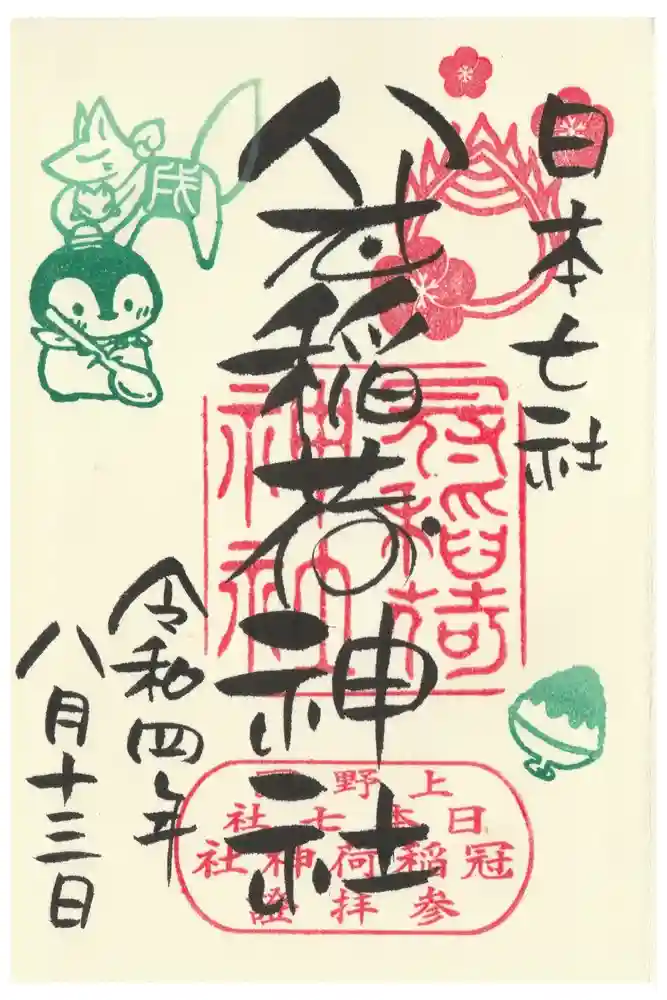 日本七社
冠稲荷神社
令和四年
八月十三日
冠稲荷
神社
上野國
日本七社
冠稲荷神社
参拝證
戌